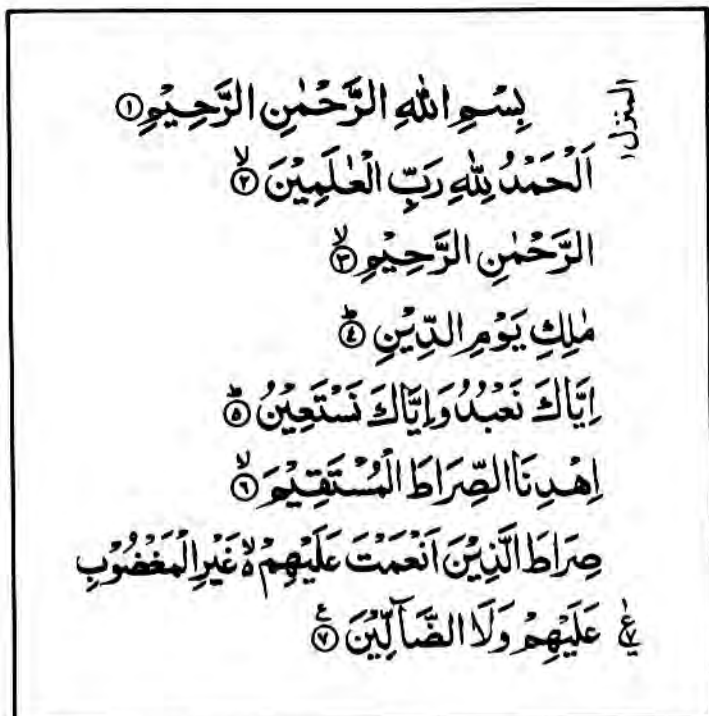 المنزل ۱
بِسْمِ اللّٰهِ الرَّحْمٰنِ الرَّحِيْمِ ①
اَلْحَمْدُ لِلّٰهِ رَبِّ الْعٰلَمِيْنَ ۙ‏﴿۲﴾
الرَّحْمٰنِ الرَّحِيْمِ ۙ‏﴿۳﴾
مٰلِكِ يَوْمِ الدِّيْنِ ؕ‏﴿۴﴾
اِيَّاكَ نَعْبُدُ وَاِيَّاكَ نَسْتَعِيْنُ ؕ‏﴿۵﴾
اِهْدِنَا الصِّرَاطَ الْمُسْتَقِيْمَ ۙ‏﴿۶﴾
صِرَاطَ الَّذِيْنَ اَنْعَمْتَ عَلَيْهِمْ ۙ۬ غَيْرِ الْمَغْضُوْبِ
عَلَيْهِمْ وَلَا الضَّآلِّيْنَ ﴿۷﴾ ع